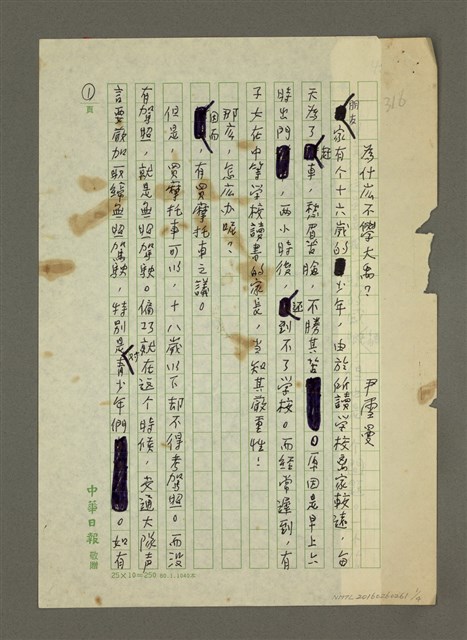 316
為什庅不學大禹？
尹雪曼
朋友家有个十六歲的少年，由於所讀学校离家較遠，每
天為了赶車，愁眉苦臉，不勝其苦。原因是早上六
時出門，两小時後，还到不了学校。而經常遲到，有
子女在中等学校讀書的家長，当知其嚴重性！
那庅，怎庅办呢？
因而有買摩托車之議。
但是，買摩托車可以，十八歲以下却不得考駕照。而没
有駕照，就是無照駕駛。偏巧就在这个時候，交通大隊声
言要嚴加取締無照駕駛，特別是对青少年們。如有
1
頁
中華日報 敬贈
25×10=250
NMTL 20160260261 1/4